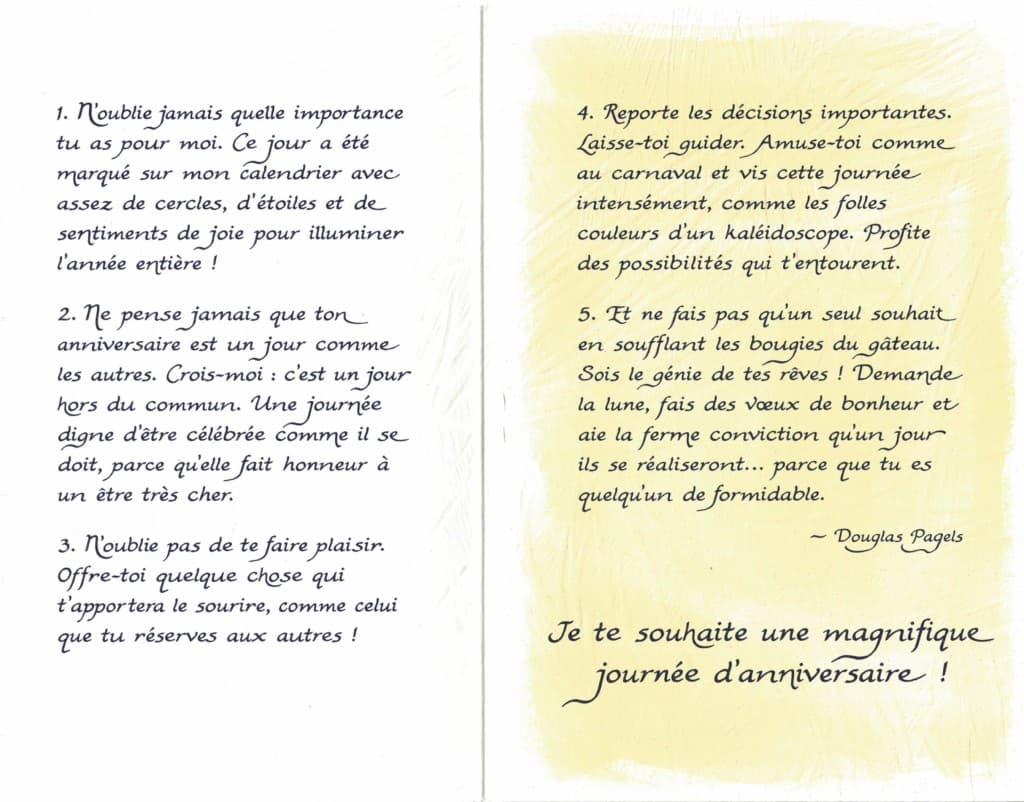 1. N'oublie jamais quelle importance
tu as pour moi. Ce jour a été
marqué sur mon calendrier avec
assez de cercles, d'étoiles et de
sentiments de joie pour illuminer
l'année entière !
2. Ne pense jamais que ton
anniversaire est un jour comme
les autres. Crois-moi : c'est un jour
hors du commun. Une journée
digne d'être célébrée comme il se
doit, parce qu'elle fait honneur à
un être très cher.
3. N'oublie pas de te faire plaisir.
Offre-toi quelque chose qui
t'apportera le sourire, comme celui
que tu réserves aux autres !
4. Reporte les décisions importantes.
Laisse-toi guider. Amuse-toi comme
au carnaval et vis cette journée
intensément, comme les folles
couleurs d'un kaléidoscope. Profite
des possibilités qui t'entourent.
5. Et ne fais pas qu'un seul souhait
en soufflant les bougies du gâteau.
Sois le génie de tes rêves ! Demande
la lune, fais des vœux de bonheur et
aie la ferme conviction qu'un jour
ils se réaliseront... parce que tu es
quelqu'un de formidable.
~ Douglas Pagels
Je te souhaite une magnifique
journée d'anniversaire !